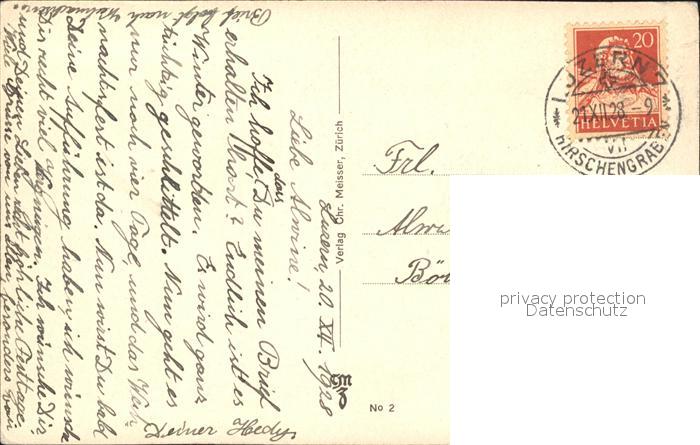 Luzern, 20. XII. 1928
Liebe Alwine!
Ich hoffe, Du meinen Brief
das
erhalten hast? Endlich ist es
Winter geworden. Es wird ganz
tüchtig geschlittelt. Nun geht es
nur noch vier Tage, und das Weih-
nachtsfest ist da. Nun wirst Du bald
Deine Aufführung haben, ich wünsche
Dir recht viel Vergnügen. Ich wünsche Dir
und Deinen Lieben recht fröhliche Festtage.
Viele Grüsse von uns allen, besonders von
Deiner Hedy
Brief folgt nach Weihnachten.
Verlag Chr. Meisser, Zürich
No 2
Frl.
Alw
Bö
20
HELVETIA
LUZERN 7
21.XII.28.-9
VII
HIRSCHENGRABEN
privacy protection
Datenschutz